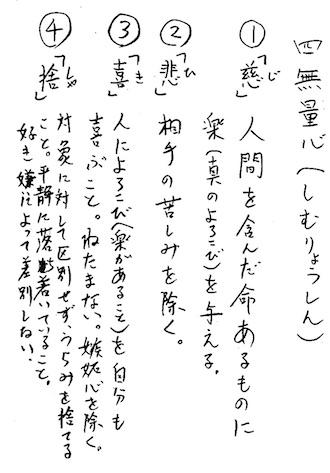 四無量心(しむりょうしん)
①「慈」じ 人間を含んだ命あるものに
楽(真のよろこび)を与える。
②「悲」ひ 相手の苦しみを除く。
③「喜」き 人によろこび(楽があること)を自分も
喜ぶこと。ねたまない。嫉妬心を除く。
④「捨」しゃ 対象に対して区別せず、うらみを捨てる
こと。平静に落ち着いていること。
好き嫌いによって差別しない。